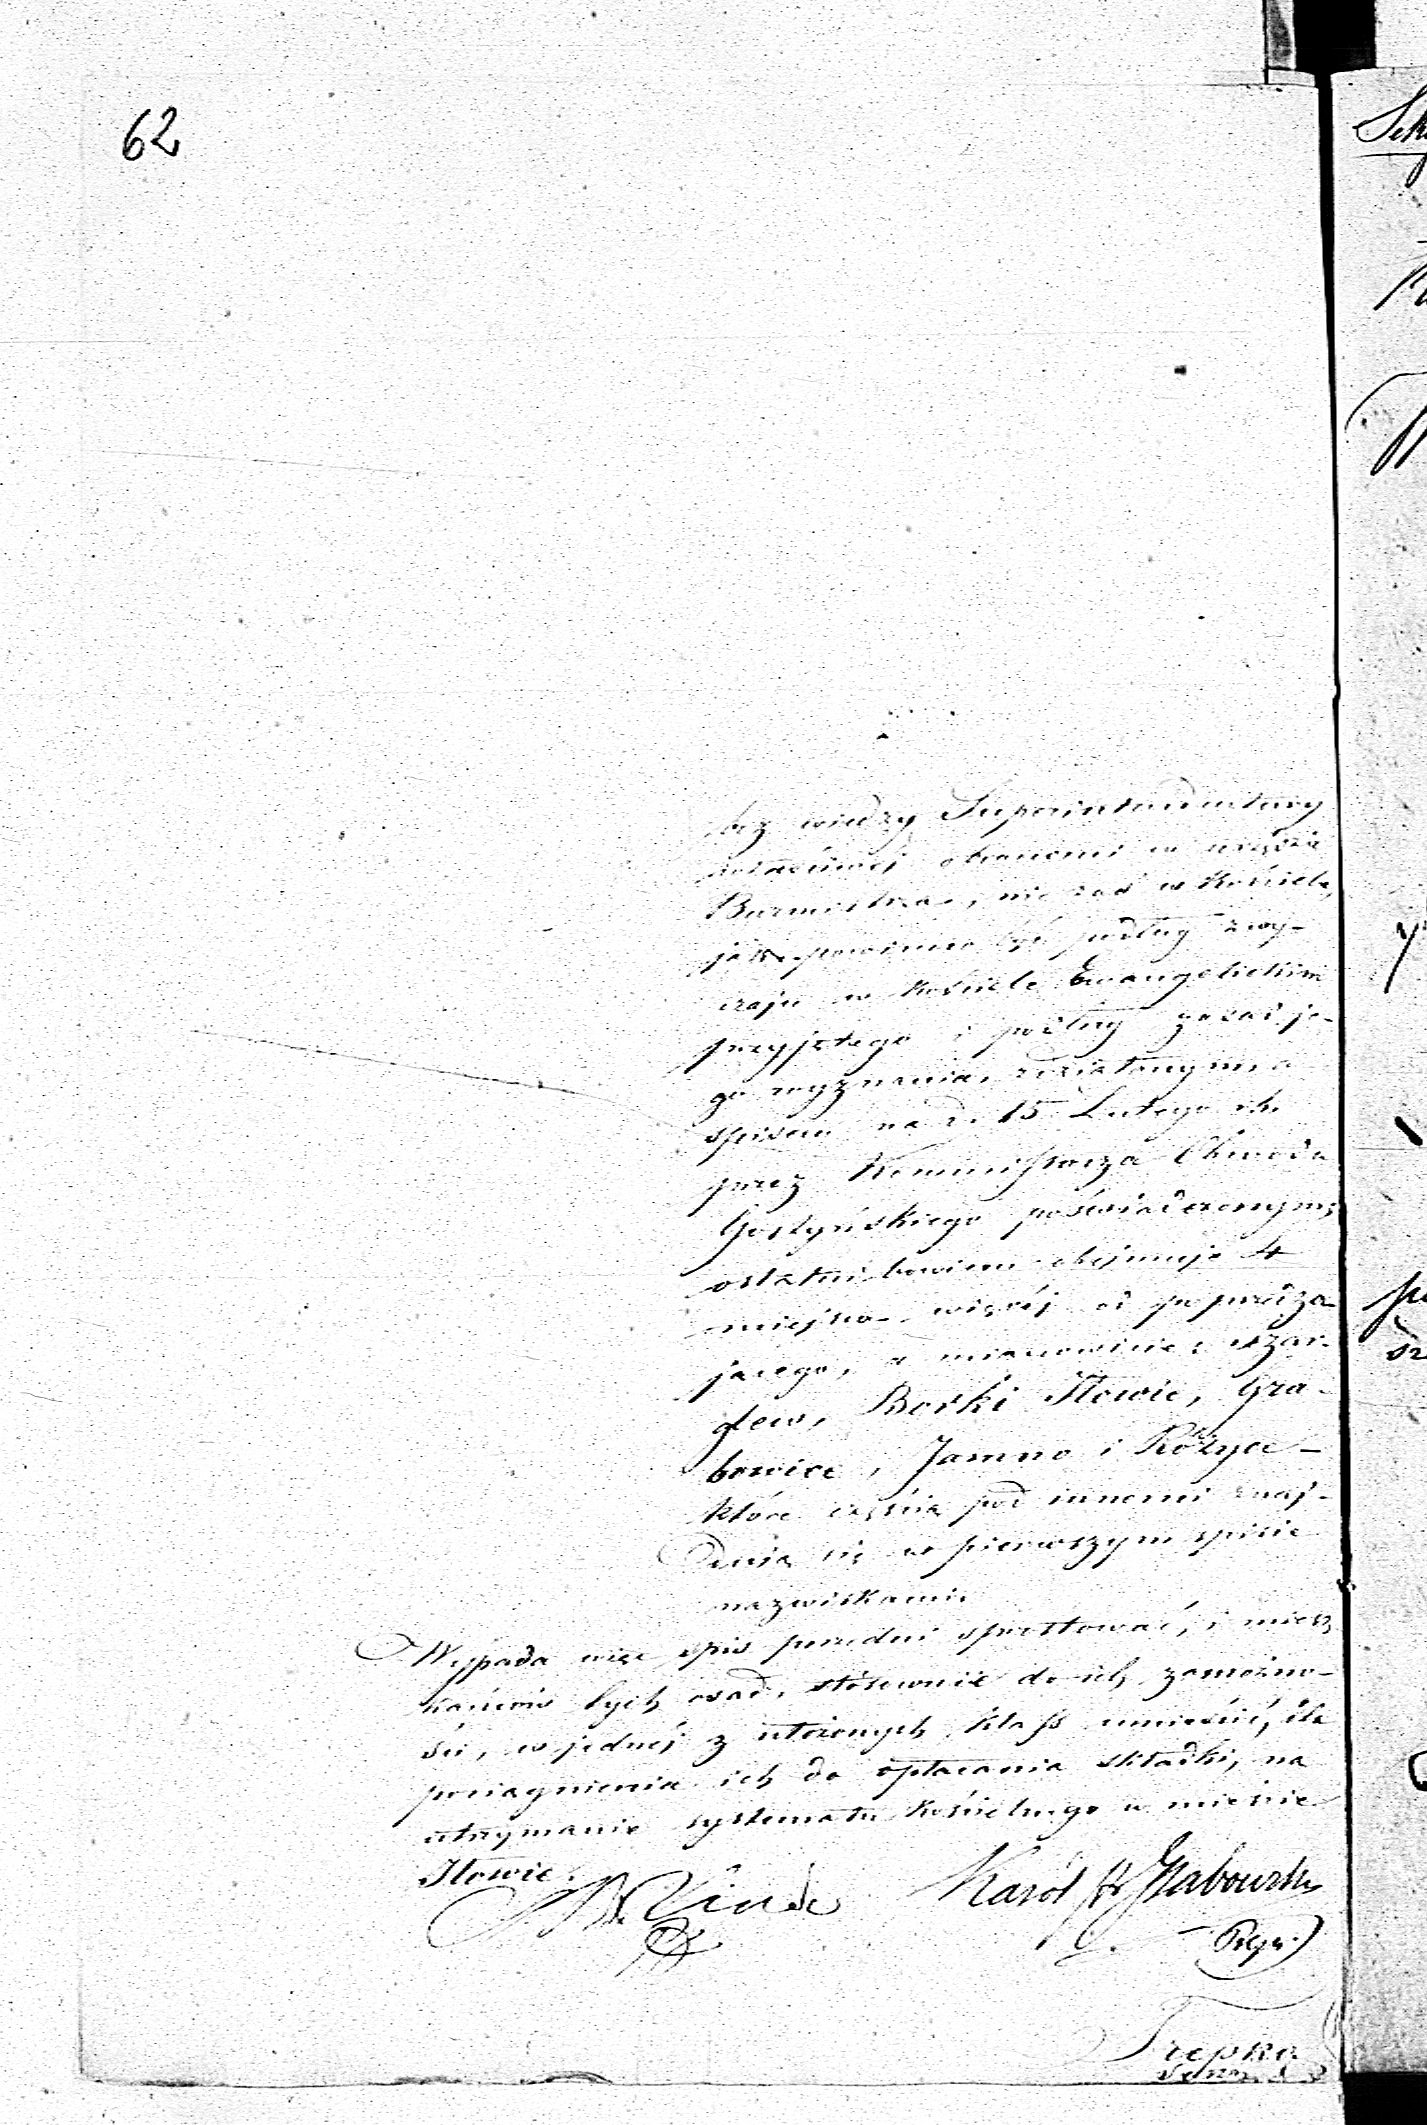 62
bez wiedzy Superintendentury
właściwej obranemi w urzędzie
Burmistrza, nie zaś w Kościele,
jak powinno być podług zwy-
czaju w Kościele Ewangelickim
przyjętego i podług zasad je-
go wyznania, zdziałanym, a
spisem na d. 15 Lutego rb.
przez Kommissarza Obwodu
Gostyńskiego poświadczonym;
ostatni bowiem obejmuje 4
miejsca więcej od poprzedza-
jącego, a mianowicie:
Borki Iłowic, Gra-
bowice, Jamno i Różyce –
które części pod innemi znaj-
dują się w pierwszym spisie
nazwiskami.
Wypada więc spis poredni sprostować, i miesz
kańców tych osad, stósownie do ich zamożno-
ści, w jednéj z ułożonych klass umieścić, dla
pociągnienia ich do opłacania składki, na
utrzymanie systematu Kościelnego w mieście
Iłowie.
Linde
Karól
Trepka